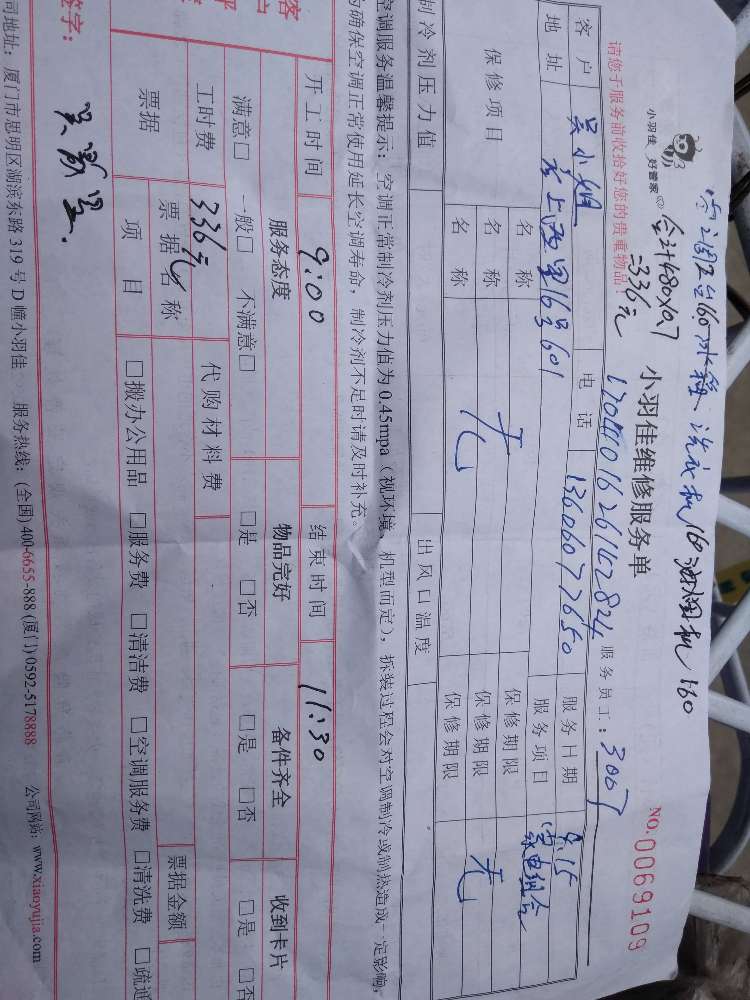 空调2台160 冰箱、洗衣机160 油烟机160
合计480×0.7
=336元
小羽佳 好管家
小羽佳维修服务单
NO.0069109
请您于服务前收拾好您的贵重物品!
17040162616 2824
服务员工: 3007
客户 吴小姐 电话 13606077650 服务日期 9.15
地址 上西里16号601 服务项目 家电组合
保修项目 名称 无 保修期限 无
名称 保修期限
名称 保修期限
制冷剂压力值 出风口温度
空调服务温馨提示: 空调正常制冷剂压力值为0.45mpa (视环境、机型而定), 拆装过程会对空调制冷或制热造成一定影响,
为确保空调正常使用延长空调寿命, 制冷剂不足时请及时补充。
开工时间 9:00 结束时间 11:30
客 服务态度 物品完好 备件齐全 收到卡片
满意□ 一般□ 不满意□ □是 □否 □是 □否 □是 □否
工时费 336元 代购材料费
票据 票据名称 票据金额
项目 □搬办公用品 □服务费 □清洁费 □空调服务费 □清洗费 □疏通
签字:
司地址: 厦门市思明区湖滨东路319号D幢小羽佳 服务热线: (全国) 400-6655-888 (厦门) 0592-5178888 公司网站: www.xiaoyujia.com